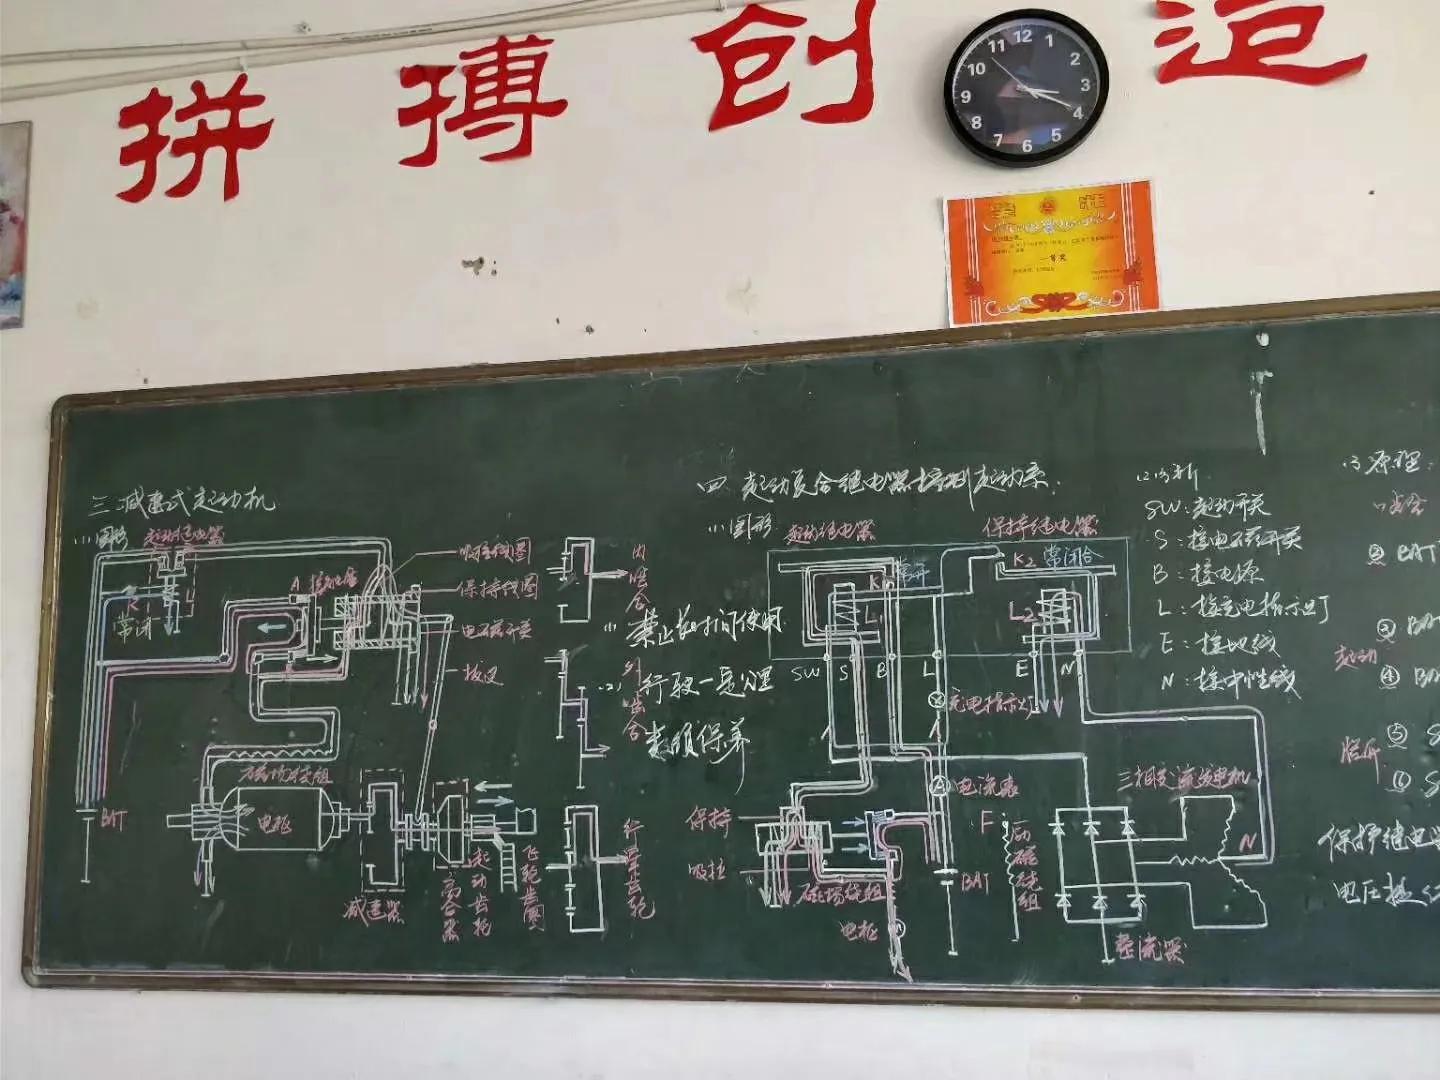 拼搏创造
12
1
2
3
4
5
6
7
8
9
10
11
一等奖
三 减速式起动机
(1)图形
起动继电器
A
吸拉线圈
保持线圈
电磁开关
拨叉
K
L
常闭
BAT
磁场绕组
电枢
减速器
离合器
起动齿轮
飞轮齿圈
内啮合
外啮合
行星齿轮
(1)
禁止长时间使用
(2)
行驶一定公里
数须保养
四 起动复合继电器控制起动系.
(1)图形
起动继电器
保持继电器
K1
常开
K2
常闭合
L1
L2
SW
S
B
L
E
N
充电指示灯
电流表
A
保持
吸拉
磁场绕组
电枢
BAT
F
励磁绕组
三相交流发电机
N
整流器
(2)分析
SW:起动开关
S:接电磁开关
B:接电源
L:接充电指示灯
E:接地线
N:接中性线
(3)原理:
② BAT
起动
③ BA
④ BA
⑤ S
⑥ S
保护继电
电压